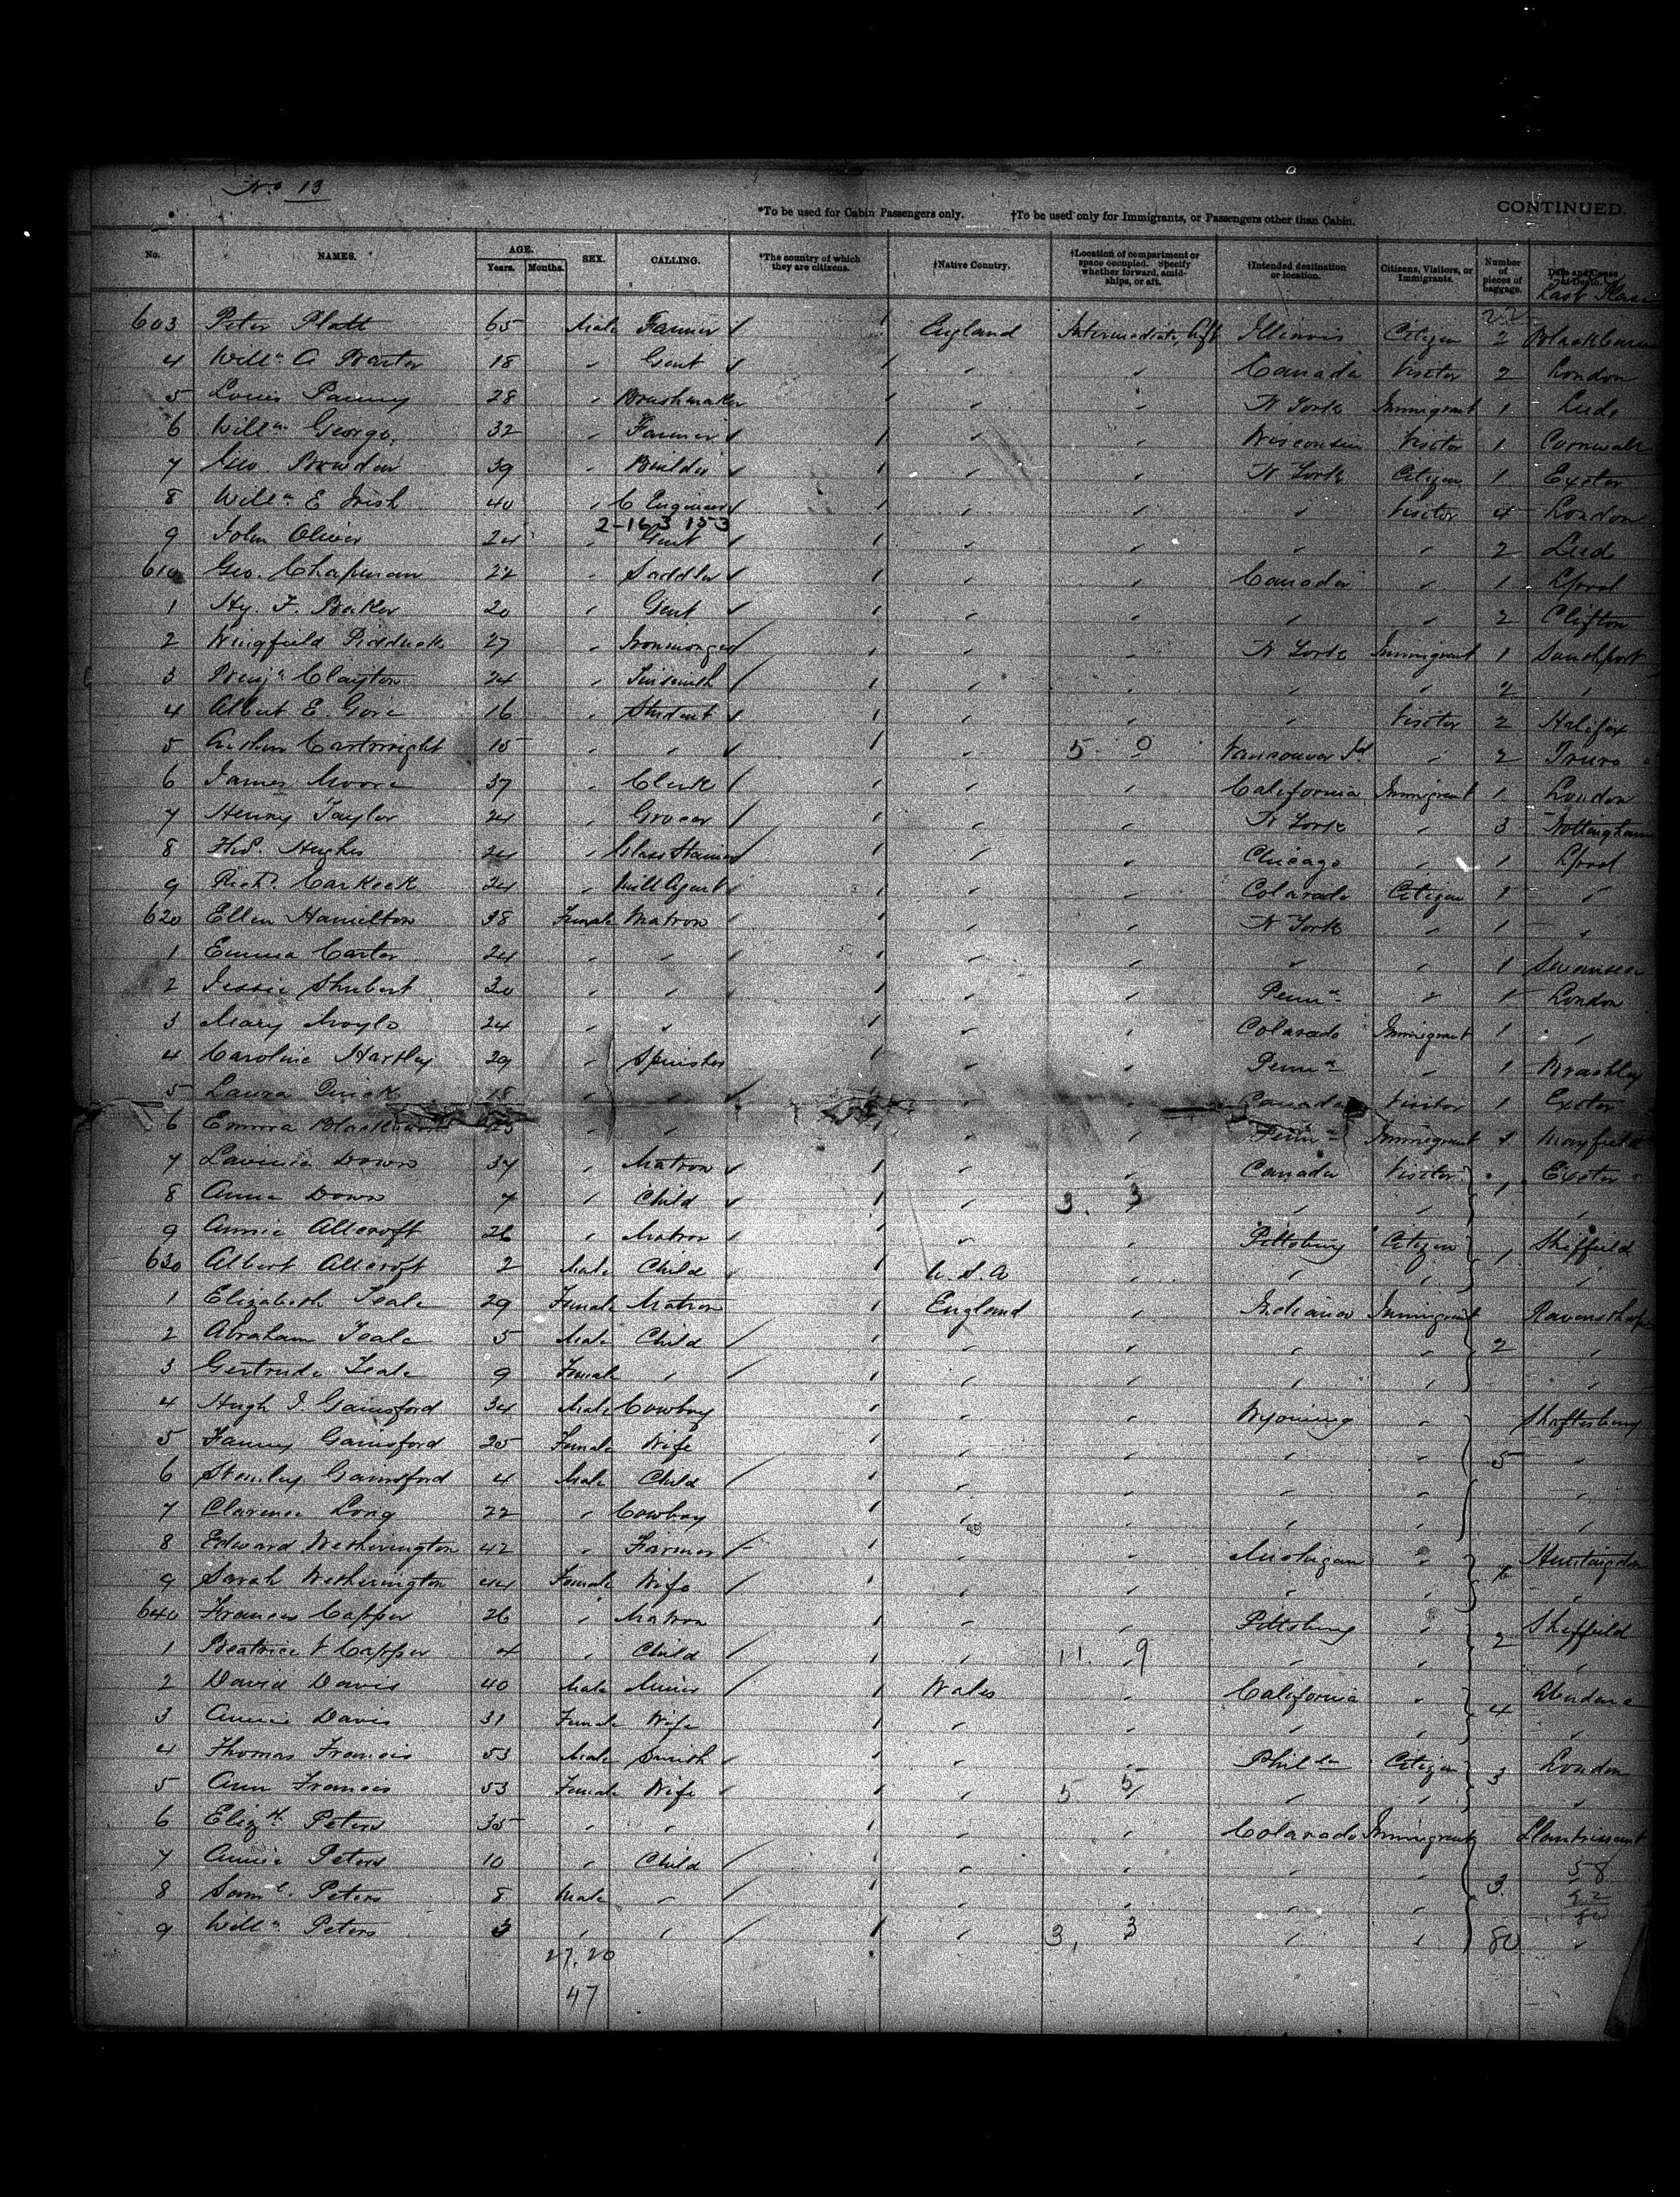 No. 13
*To be used for Cabin Passengers only. †To be used only for Immigrants, or Passengers other than Cabin. CONTINUED.
No. NAMES. AGE. Years. Months. SEX. CALLING. *The country of which they are citizens. †Native Country. †Location of compartment or space occupied. Specify whether forward, amidships, or aft. †Intended destination or location. Citizens, Visitors, or Immigrants. Number of pieces of baggage. Date and Cause of Death.
22
603 Peter Platt 65 Male Farmer England Intermediate, Aft Illinois Citizen 2
4 Will'm A 18 " Gent " " Canada Visitor 2 London
5 Louis 28 " Brushmaker " " N York Immigrant 1
6 Will'm George 32 " Farmer " " Wisconsin Visitor 1 Cornwall
7 Geo. Bowden 39 " Builder " " N York Citizen 1 Exeter
8 Will'm E Irish 40 " C Engineer " " " Visitor 4 London
2-163 153
9 John Oliver 24 " Gent " " " " 2
610 Geo. Chapman 22 " Saddler " " Canada " 1 L'pool
1 Hy. F. Baker 20 " Gent " " " " 2 Clifton
2 Wingfield Pidduck 27 " Ironmonger " " N York Immigrant 1 Southport
3 Benj'n Clayton 24 " Tinsmith " " " " 2 "
4 Albert E. Gore 16 " Student " " " Visitor 2 Halifax
5 Arthur Cartwright 15 " " " 5 0 Vancouver Isd " 2 Truro
6 James Moore 37 " Clerk " " California Immigrant 1 London
7 Henry Taylor 24 " Grocer " " N York " 3 Nottingham
8 Hughes 24 " Glass Stainer " " Chicago " 1 L'pool
9 Richd. Carkeek 24 " Mill Agent " " Colarado Citizen 1 "
620 Ellen Hamilton 38 Female Matron " " N York " 1 "
1 Emma Carter 24 " " " " " " 1 Swansea
2 Jessie Shubert 30 " " " " Penn'a " 1 London
3 Mary Moyle 24 " " " " Colarado Immigrant 1 "
4 Caroline Hartley 29 " Spinster " " Penn'a " 1
5 Laura Quick 18 " " " " Canada Visitor 1 Exeter
6 Emma " " " " Penn'a Immigrant 1 Mayfield
7 Lavinia Down 37 " Matron " " Canada Visitor Exeter
8 Anna Down 7 " Child " 3. 3 " " 1 "
9 Annie Allcroft 26 " Matron " " Pittsburg Citizen Sheffield
630 Albert Allcroft 2 Male Child U.S.A " " " 1 "
1 Elizabeth Teale 29 Female Matron England " Indiana Immigrant Ravensthorpe
2 Abraham Teale 5 Male Child " " " " 2 "
3 Gertrude Teale 9 Female " " " " " "
4 Hugh J. Gainsford 34 Male Cowboy " " Wyoming " Shaftesbury
5 Fanny Gainsford 25 Female Wife " " " " 5 "
6 Stanley Gainsford 4 Male Child " " " " "
7 Clarence Long 22 " Cowboy " " " " "
8 Edward Wetherington 42 " Farmer " " Michigan " Huntingdon
9 Sarah Wetherington 44 Female Wife " " " " "
640 Frances Capper 26 " Matron " " Pittsburg " Sheffield
1 Beatrice V Capper 4 " Child " 11. 9 " " 2 "
2 David Davis 40 Male Miner Wales " California "
3 Annie Davis 31 Female Wife " " " " 4 "
4 Thomas Francis 53 Male Smith " " Citizen London
5 Ann Francis 53 Female Wife " 5 5 " " 3 "
6 Elizth Peters 35 " " " " Colarado Immigrant Llantrissant
7 Annie Peters 10 " Child " " " " 58
8 Saml. Peters 8 Male " " " " " 3
9 Will'm Peters 3 " " " 3, 3 " " 80 "
27.20
47